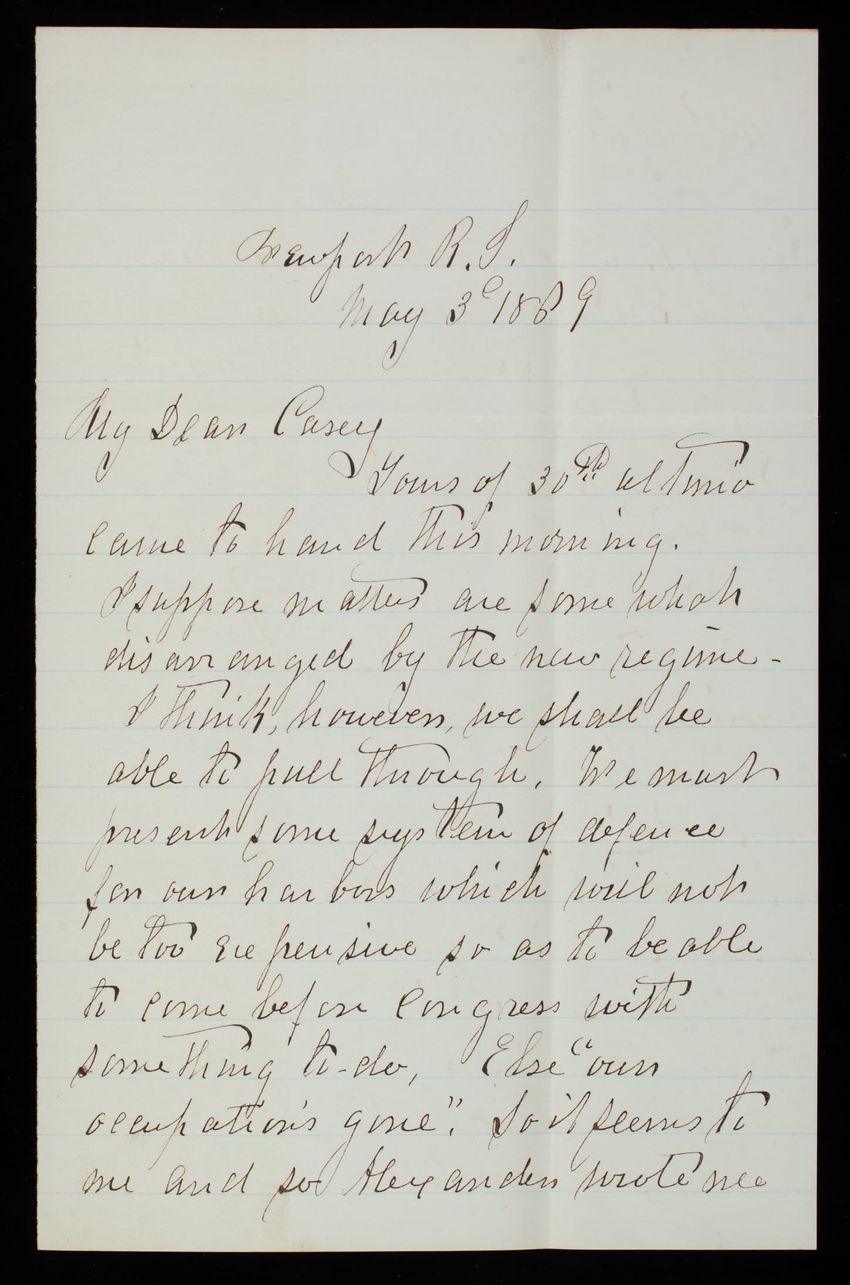 Newport R.I.
May 3d 1869
My Dear Casey
Yours of 30th ultimo
came to hand this morning.
I suppose matters are somewhat
disarranged by the new regime-
I think, however, we shall be
able to pull through. We must
present some system of defence
for our harbors which will not
be too expensive so as to be able
to come before Congress with
something to-do, Else "our
occupation's gone". So it seems to
me and so Alexander wrote me